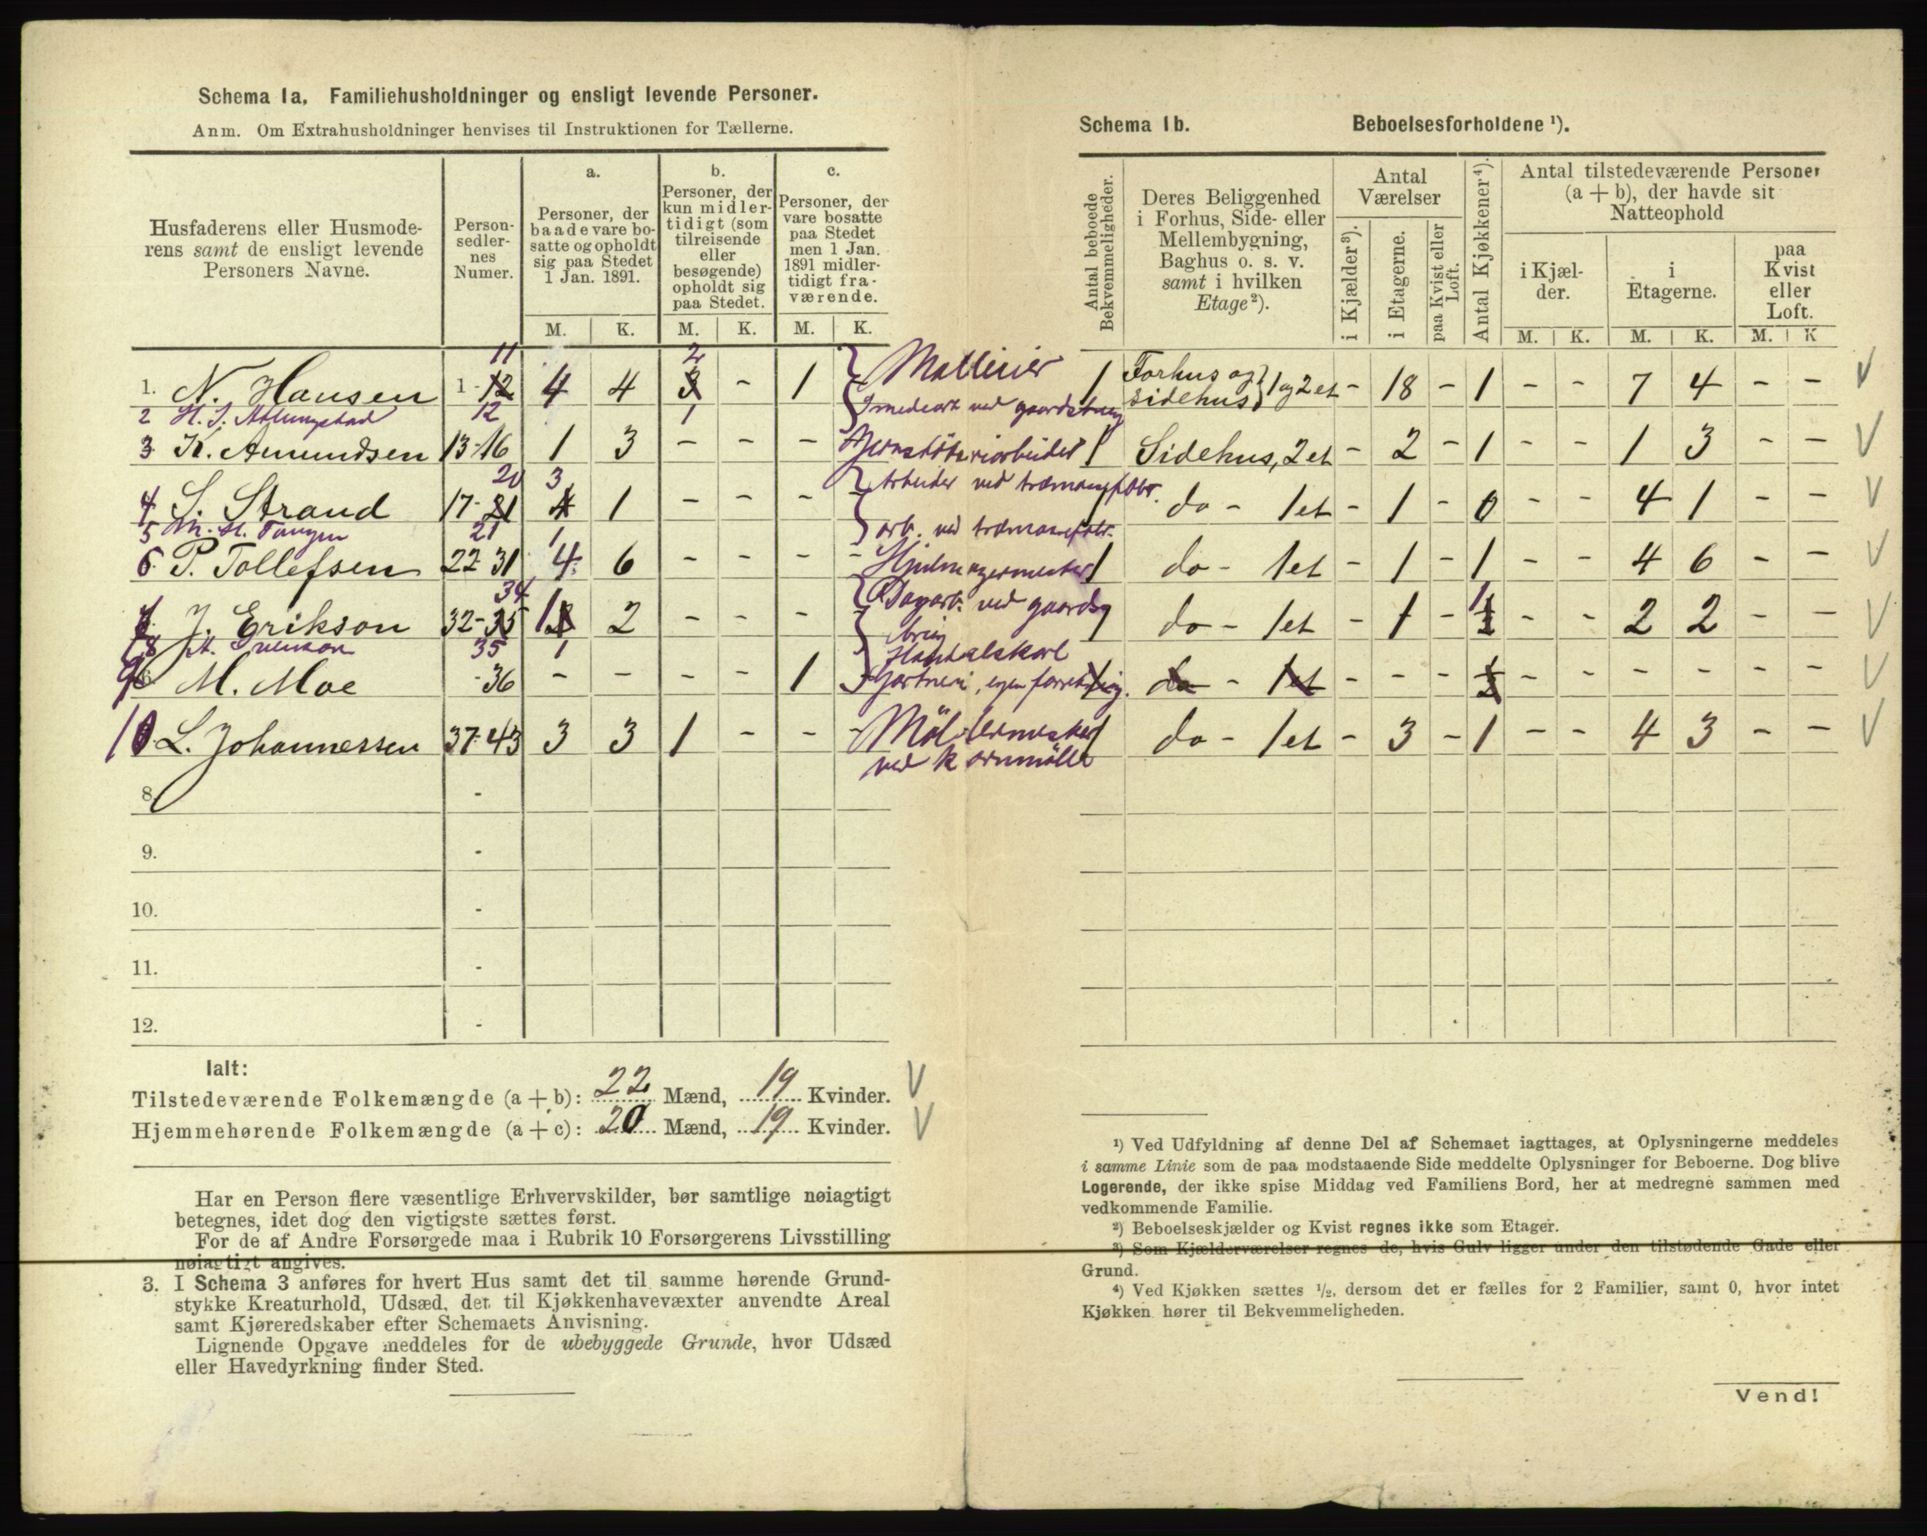 Schema 1a. Familiehusholdninger og ensligt levende Personer.
Anm. Om Extrahusholdninger henvises til Instruktionen for Tællerne.
Husfaderens eller Husmoderens samt de ensligt levende Personers Navne.
Personsedlernes Numer.
a.
Personer, der baade vare bosatte og opholdt sig paa Stedet 1 Jan. 1891.
b.
Personer, der kun midlertidigt (som tilreisende eller besøgende) opholdt sig paa Stedet.
c.
Personer, der vare bosatte paa Stedet men 1 Jan. 1891 midlertidigt fraværende.
M. K. M. K. M. K.
11 2
1. N. Hansen 1-12 4 4 3 - 1 Möllerier
2 12 1 ved
3 K. Amundsen 13-16 1 3 - - -
20 3 Arbeider ved
4 S. Strand 17-21 4 1 - - -
5 M. H. Tangen 21 1 arb. ved
6. P. Tollefsen 22-31 4 6 - - - -
34 ved
7 J. Erikson 32-35 1 2 2 - - -
8 35 1
9 M. Moe -36 - - - - 1 Gartneri, egen
10 L. Johannessen 37-43 3 3 1 - - -
ved Kornmölle
8. -
9. -
10. -
11. -
12. -
Ialt:
Tilstedeværende Folkemængde (a + b): 22 Mænd, 19 Kvinder. V
Hjemmehørende Folkemængde (a + c): 20 Mænd, 19 Kvinder. V
Har en Person flere væsentlige Erhvervskilder, bør samtlige nøiagtigt
betegnes, idet dog den vigtigste sættes først.
For de af Andre Forsørgede maa i Rubrik 10 Forsørgerens Livsstilling
nøiagtigt angives.
3. I Schema 3 anføres for hvert Hus samt det til samme hørende Grund-
stykke Kreaturhold, Udsæd, det til Kjøkkenhavevæxter anvendte Areal
samt Kjøreredskaber efter Schemaets Anvisning.
Lignende Opgave meddeles for de ubebyggede Grunde, hvor Udsæd
eller Havedyrkning finder Sted.
Schema 1b. Beboelsesforholdene ¹).
Antal beboede Bekvemmeligheder.
Deres Beliggenhed i Forhus, Side- eller Mellembygning, Baghus o. s. v. samt i hvilken Etage²).
Antal Værelser
i Kjælder³).
i Etagerne.
paa Kvist eller Loft.
Antal Kjøkkener⁴).
Antal tilstedeværende Personer (a + b), der havde sit Natteophold
i Kjælder.
i Etagerne.
paa Kvist eller Loft.
M. K. M. K. M. K
1 Forhus og Sidehus } 1 og 2 et - 18 - 1 - - 7 4 - - V
1 Sidehus, 2 et - 2 - 1 - - 1 3 - - V
1 do - 1 et - 1 - 0 - - 4 1 - - V
1 do - 1 et - 1 - 1 - - 4 6 - - V
1 do - 1 et - 1 - 1 ½ - - 2 2 - - V
1 do - 1 et - - - ½ - - - - - - V
1 do - 1 et - 3 - 1 - - 4 3 - - V
¹) Ved Udfyldning af denne Del af Schemaet iagttages, at Oplysningerne meddeles
i samme Linie som de paa modstaaende Side meddelte Oplysninger for Beboerne. Dog blive
Logerende, der ikke spise Middag ved Familiens Bord, her at medregne sammen med
vedkommende Familie.
²) Beboelseskjælder og Kvist regnes ikke som Etager.
³) Som Kjælderværelser regnes de, hvis Gulv ligger under den tilstødende Gade eller
Grund.
⁴) Ved Kjøkken sættes ½, dersom det er fælles for 2 Familier, samt 0, hvor intet
Kjøkken hører til Bekvemmeligheden.
Vend!